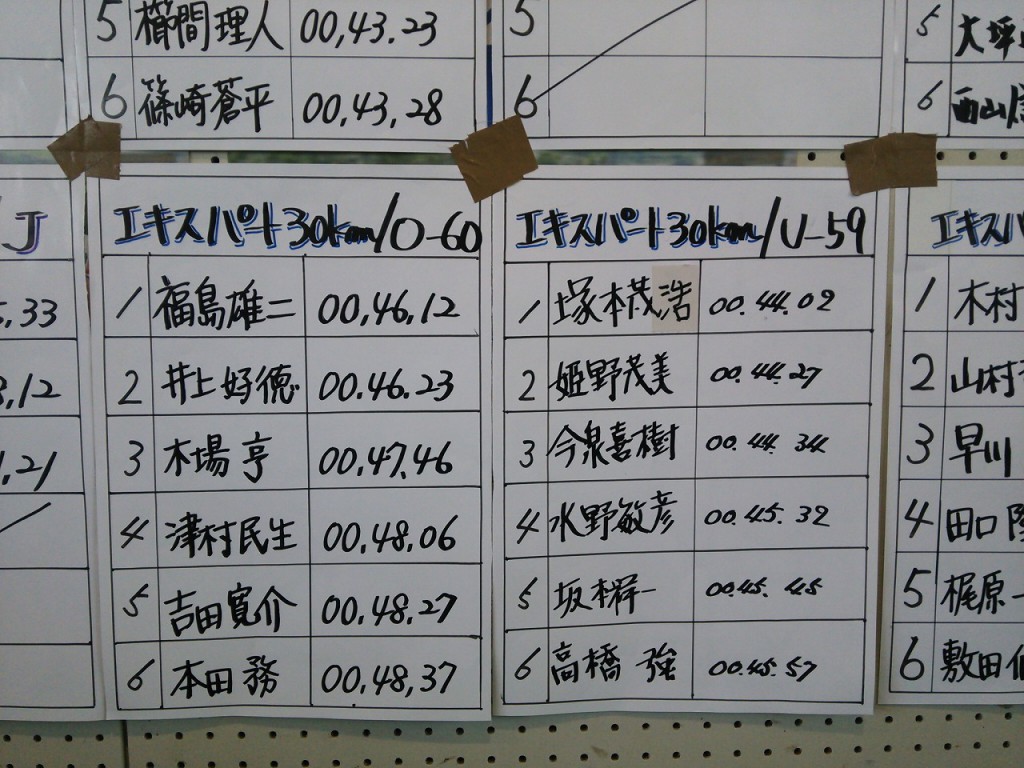 5 櫛間理人 00,43.23
6 篠崎蒼平 00,43,28
5
6
5 大坪
6 西山
J
33
12
21
エキスパート30km/O-60
1 福島雄二 00,46,12
2 井上好徳 00.46.23
3 木場亨 00,47.46
4 津村民生 00,48.06
5 吉田寛介 00,48.27
6 本田務 00.48,37
エキスパート30km/U-59
1 塚本茂浩 00.44.02
2 姫野茂美 00.44.27
3 今泉喜樹 00.44.34
4 水野敏彦 00.45.32
5 坂本祥一 00.45.45
6 高橋強 00.45.57
エキスパ
1 木村
2 山村
3 早川
4 田口
5 梶原
6 敷田